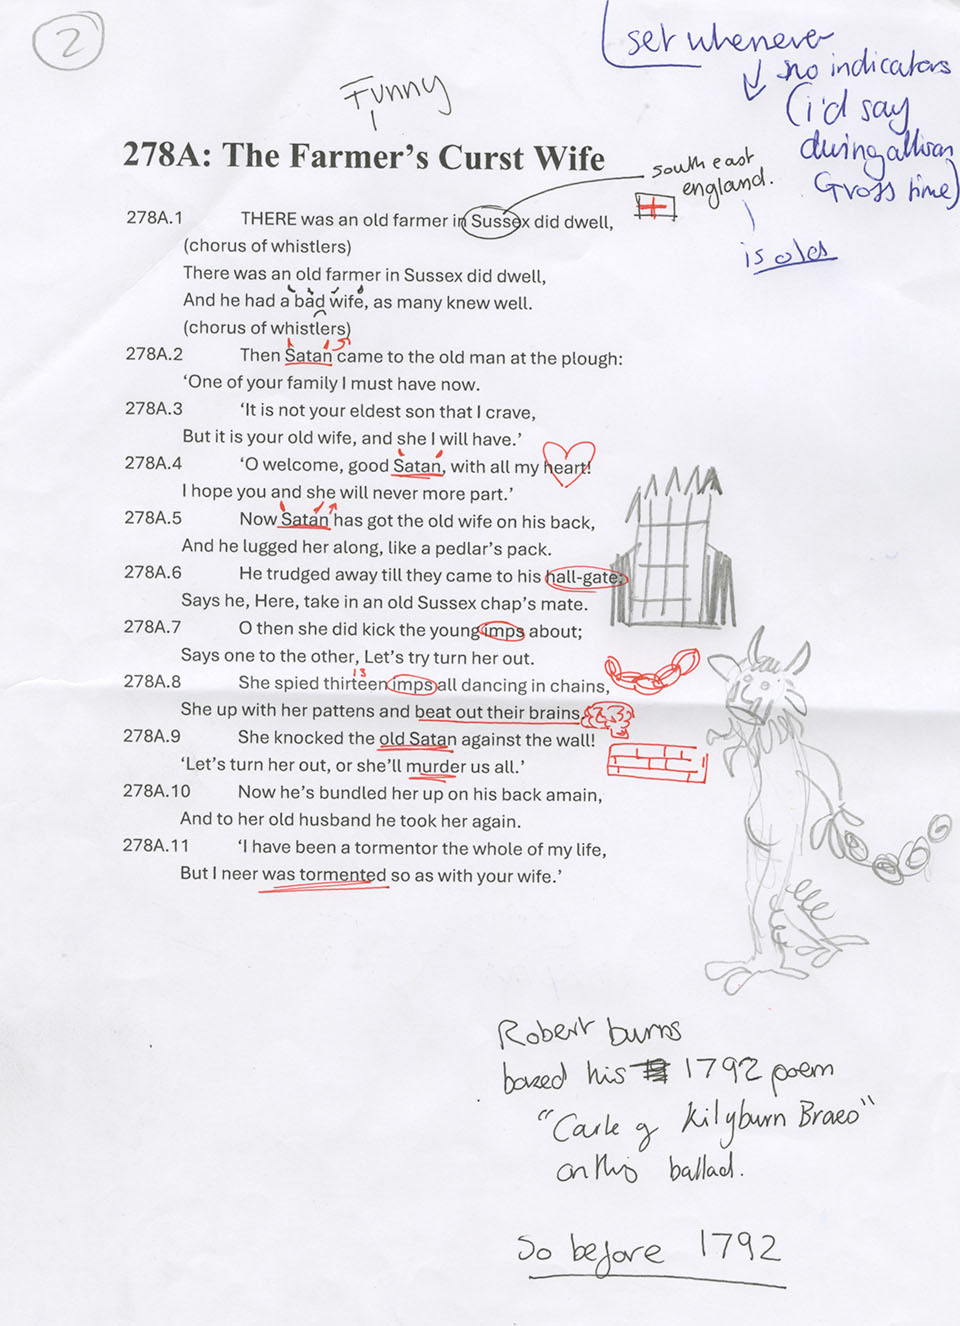 2
set whenever
no indicators
(i'd say
during allison
Gross time)
Funny
278A: The Farmer's Curst Wife
south east
england.
is olde
278A.1 THERE was an old farmer in Sussex did dwell,
(chorus of whistlers)
There was an old farmer in Sussex did dwell,
And he had a bad wife, as many knew well.
(chorus of whistlers)
278A.2 Then Satan came to the old man at the plough:
‘One of your family I must have now.
278A.3 ‘It is not your eldest son that I crave,
But it is your old wife, and she I will have.’
278A.4 ‘O welcome, good Satan, with all my heart!
I hope you and she will never more part.’
278A.5 Now Satan has got the old wife on his back,
And he lugged her along, like a pedlar’s pack.
278A.6 He trudged away till they came to his hall-gate;
Says he, Here, take in an old Sussex chap’s mate.
278A.7 O then she did kick the young imps about;
Says one to the other, Let’s try turn her out.
13
278A.8 She spied thirteen imps all dancing in chains,
She up with her pattens and beat out their brains.
278A.9 She knocked the old Satan against the wall!
‘Let’s turn her out, or she’ll murder us all.’
278A.10 Now he’s bundled her up on his back amain,
And to her old husband he took her again.
278A.11 ‘I have been a tormentor the whole of my life,
But I neer was tormented so as with your wife.’
Robert burns
bazed his 1792 poem
"Carle of Kilyburn Braeo"
on this ballad.
So before 1792